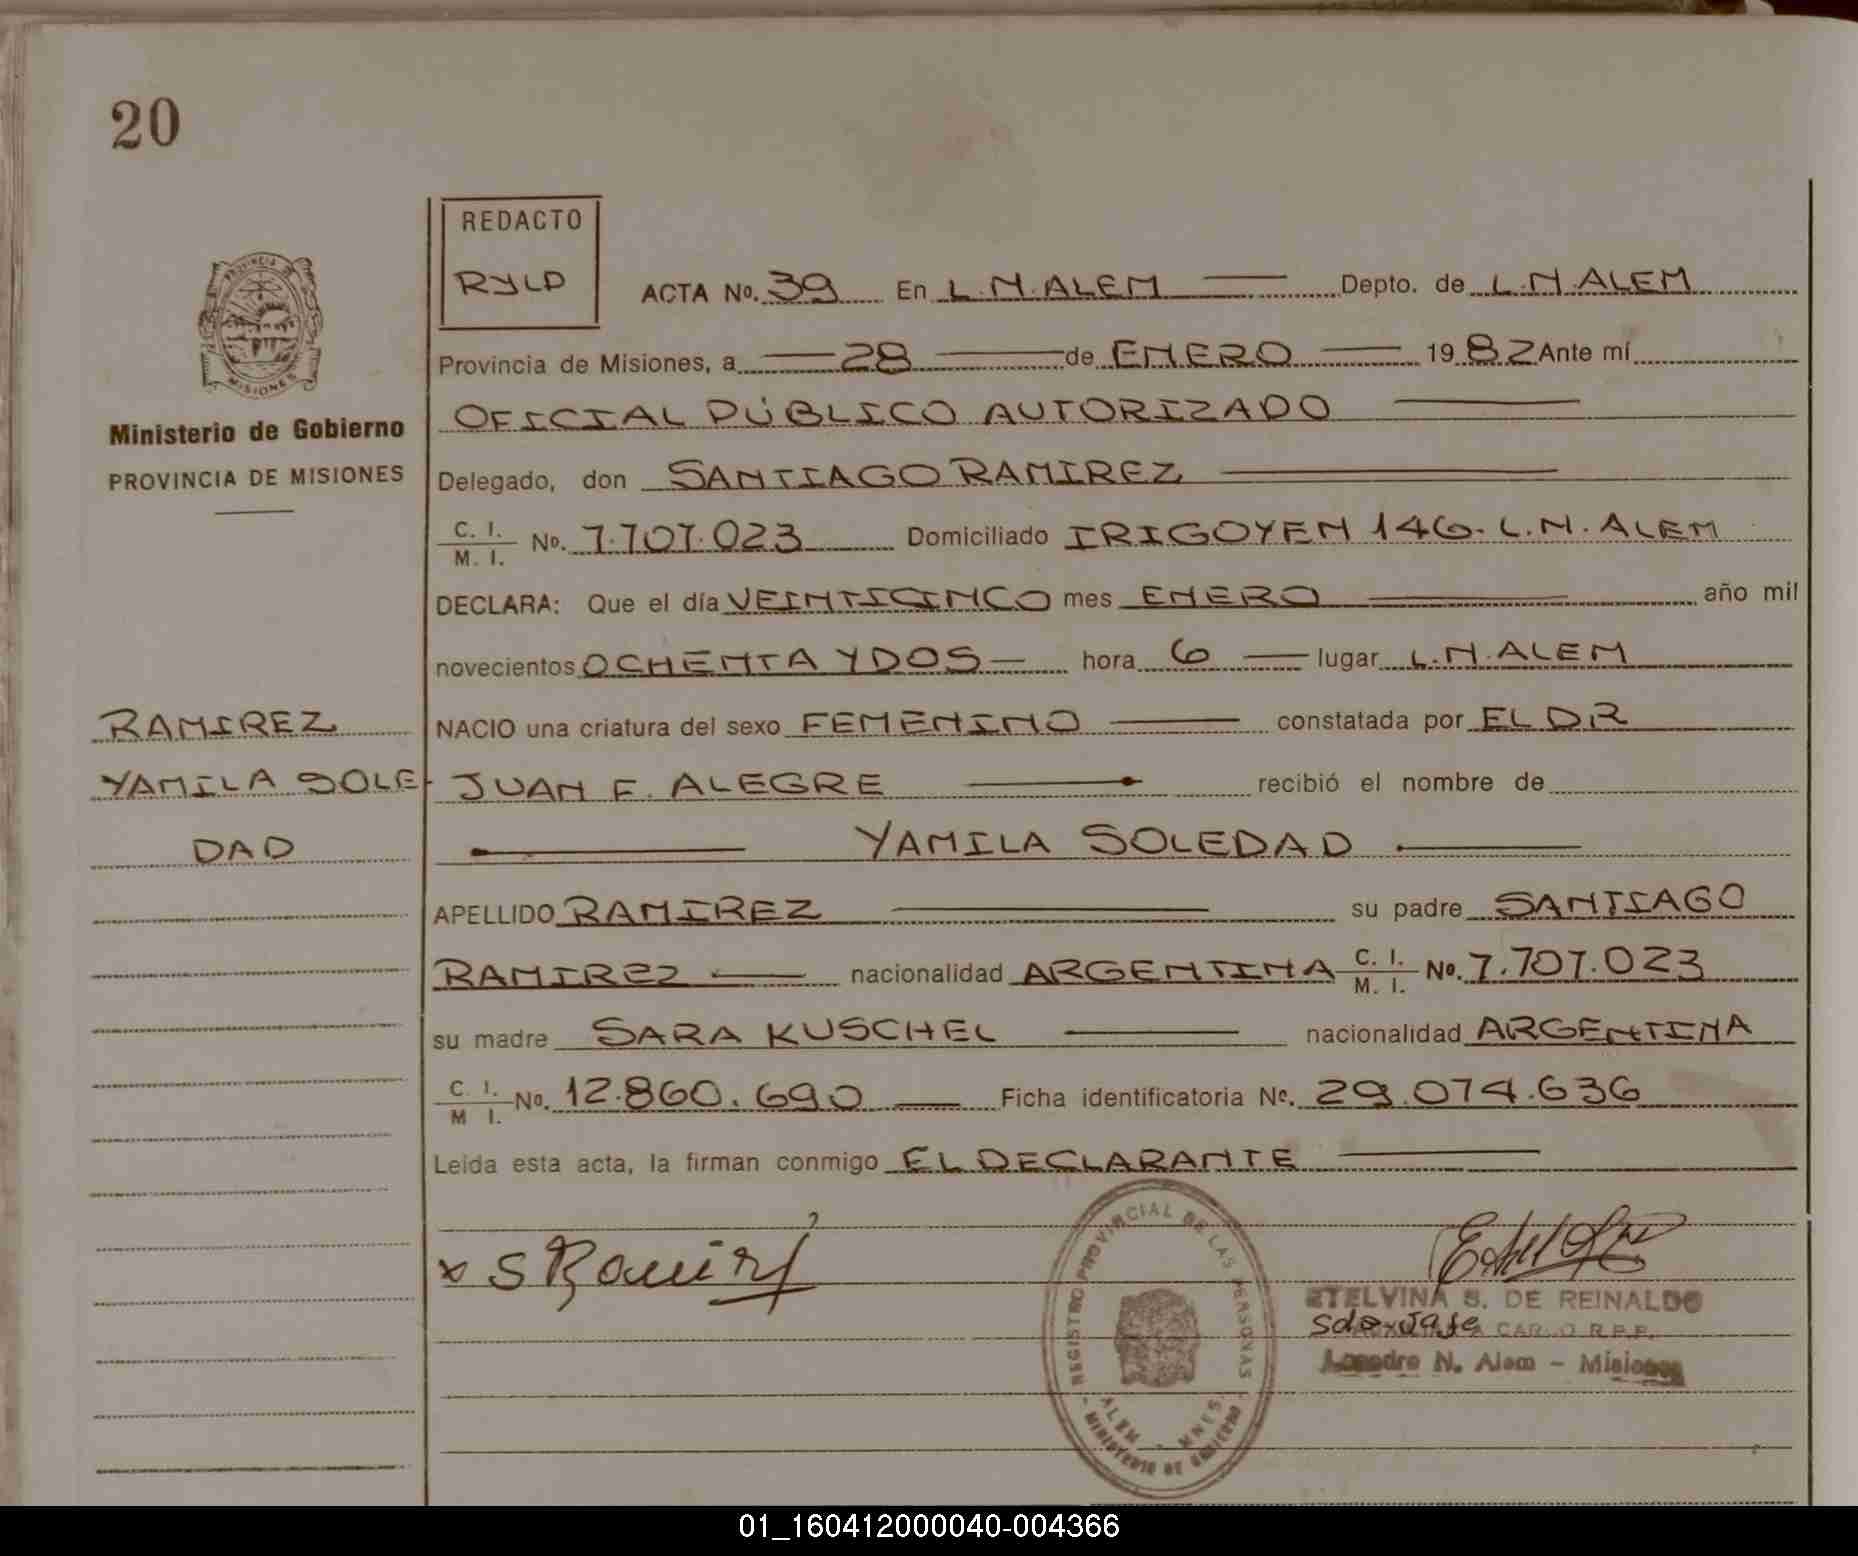 20
REDACTO
RYLD
ACTA No. 39 En L.N.ALEM Depto. de L.N.ALEM
Provincia de Misiones, a 28 de ENERO 1982 Ante mí
Ministerio de Gobierno
PROVINCIA DE MISIONES
OFICIAL PÚBLICO AUTORIZADO
Delegado, don SANTIAGO RAMIREZ
C. I. M. I. No. 7.707.023 Domiciliado IRIGOYEN 146. L.N.ALEM
DECLARA: Que el día VEINTICINCO mes ENERO año mil
novecientos OCHENTA Y DOS hora 6 lugar L.N.ALEM
NACIO una criatura del sexo FEMENINO constatada por EL DR
JUAN F. ALEGRE recibió el nombre de
YAMILA SOLEDAD
RAMIREZ
YAMILA SOLE-
DAD
APELLIDO RAMIREZ su padre SANTIAGO
RAMIREZ nacionalidad ARGENTINA C. I. M. I. No. 7.707.023
su madre SARA KUSCHEL nacionalidad ARGENTINA
C. I. M I. No. 12.860.690 Ficha identificatoria No. 29.074.636
Leída esta acta, la firman conmigo EL DECLARANTE
x S Ramirez
REGISTRO PROVINCIAL DE LAS PERSONAS
ALEM - MNES.
- MINISTERIO DE GOBIERNO -
ETELVINA S. DE REINALDO
A CARGO R.P.P.
Leandro N. Alem - Misiones
01_160412000040-004366